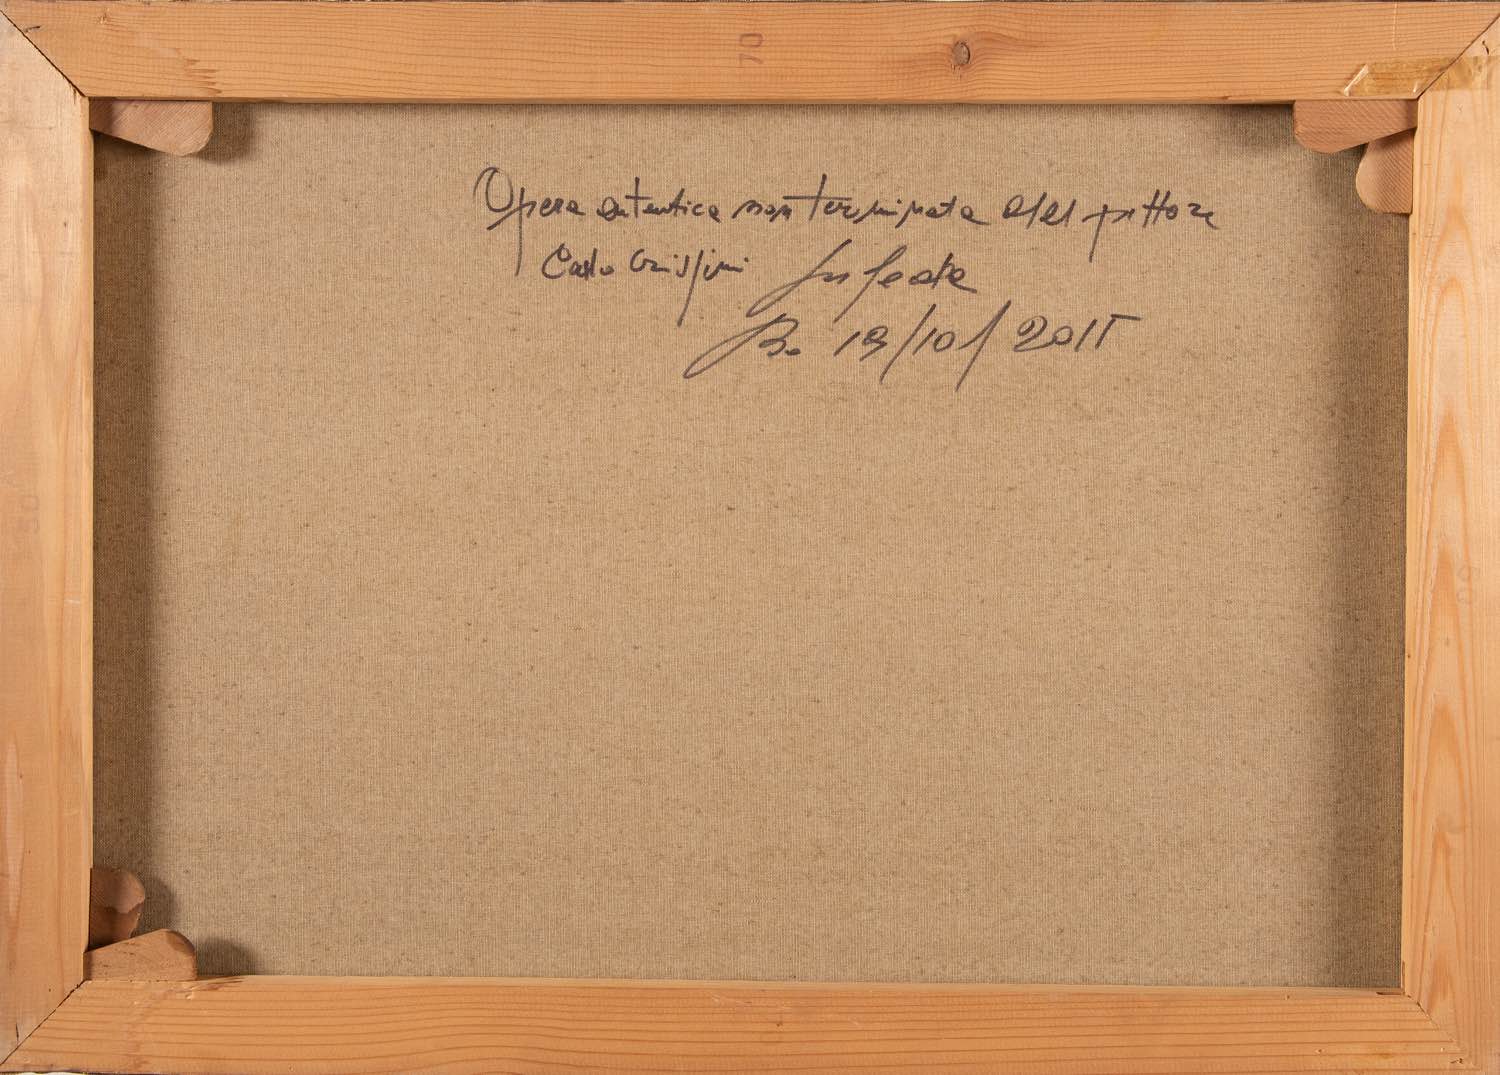 70
Opera autentica non terminata del pittore
Carlo Crispini In fede
Bo 19/10/2015
50
50